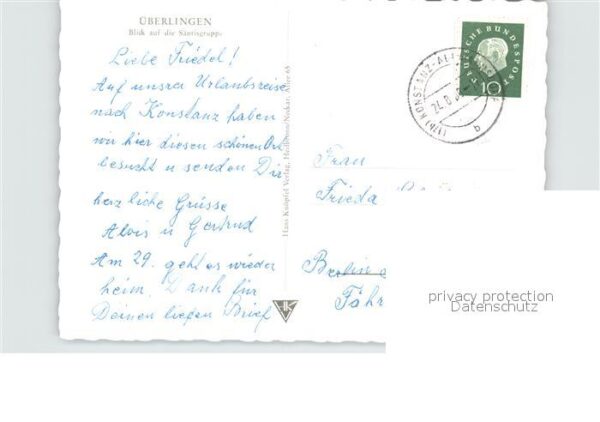 ÜBERLINGEN
Blick auf die Säntisgruppe
Liebe Friedel!
Auf unsrer Urlaubsreise
nach Konstanz haben
wir hier diesen schönen Ort
besucht u senden Dir
herzliche Grüsse
Alois u Gertrud
Am 29. geht es wieder
heim. Dank für
Deinen lieben Brief
Hans Knöpfel Verlag, Heilbronn/Neckar, Allee 65
HK
DEUTSCHE BUNDESPOST
10
(17b) KONSTANZ
24.
b
Frau
Frieda
Berlin
privacy protection
Datenschutz